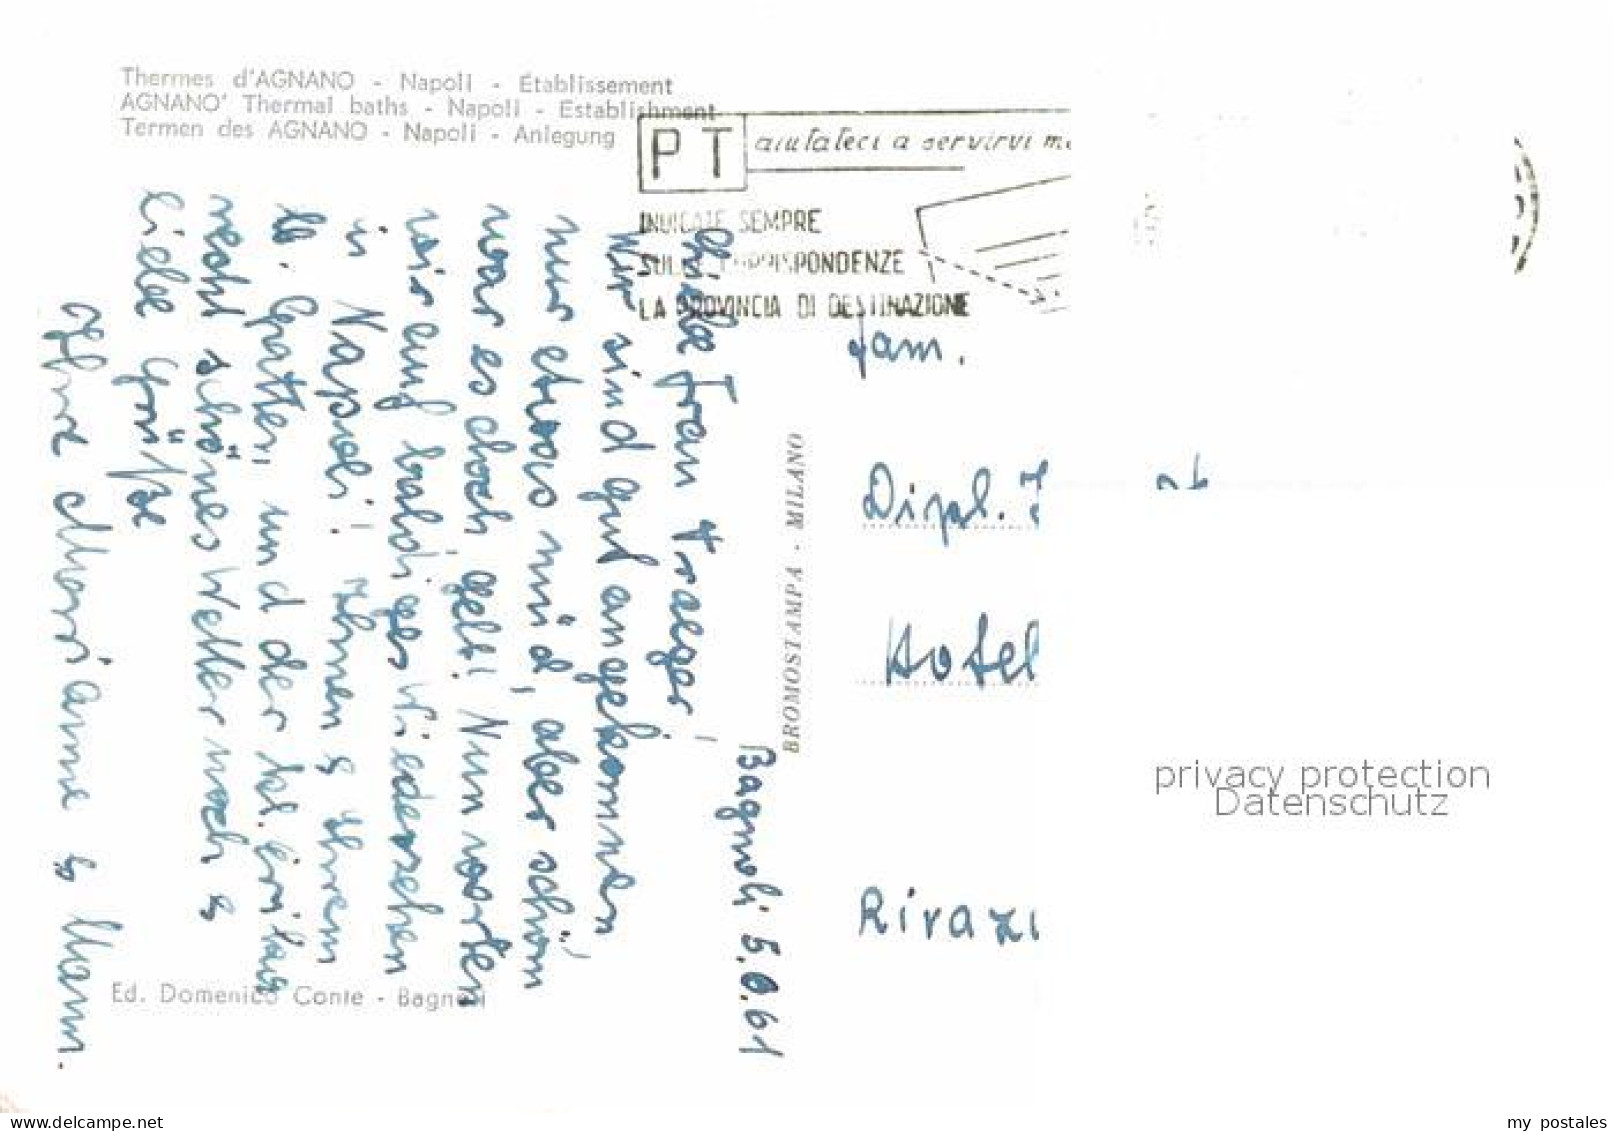 Thermes d'AGNANO - Napoli - Etablissement
AGNANO' Thermal baths - Napoli - Establishment
Termen des AGNANO - Napoli - Anlegung
PT aiutateci a servirvi
INDICATE SEMPRE
SULLE CORRISPONDENZE
LA PROVINCIA DI DESTINAZIONE
Bagnoli 5.6.61
Liebe Frau Traeger,
Wir sind gut angekommen
nur etwas müd, aber schön
war es doch, gelt! Nun warten
wir auf baldiges Wiedersehen
in Napoli! Ihnen & Ihrem
lb. Gatten, und der
recht schönes Wetter noch &
liebe Grüße
Ihre Marianne & Mann.
BROMOSTAMPA - MILANO
Ed. Domenico Conte - Bagnoli
Fam.
Dipl. I
Hotel
Rivazz
privacy protection
Datenschutz
delcampe.net
my_postales